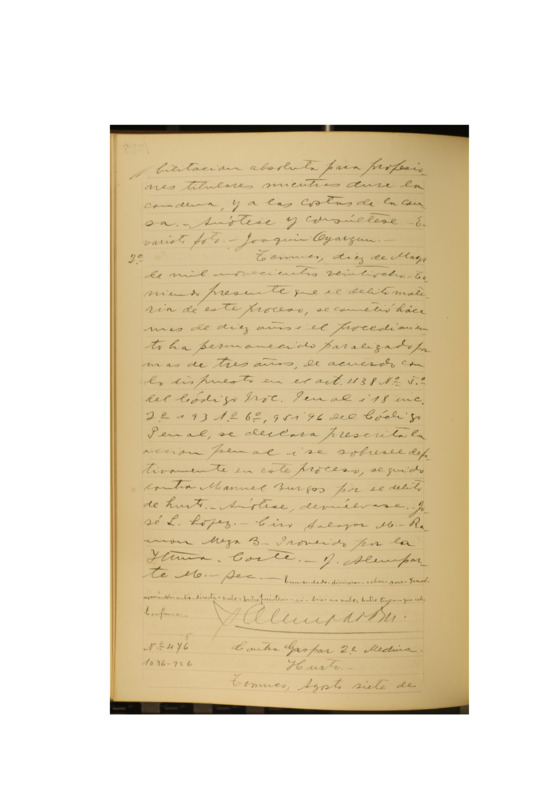 bilitacion absoluta para profesio
nes titulares mientras dure la
condena, y a las costas de la cau
sa.- Anótese y consúltese.- E.
varisto Soto.- Joaquin Oyarzun.-
2ª Temuco, diez de Mayo
de mil novecientos veintiocho.- Te
niendo presente que el delito mate
ria de este proceso, se cometió hace
mas de diez años i el procedimien
to ha permanecido paralizado por
mas de tres años, de acuerdo con
lo dispuesto en el art. 438 Nº 5º
del Código Proc. Penal i 18 inc.
2º i 93 Nº 6º, 95 i 96 del Código
Penal, se declara prescrita la
accion penal i se sobresee defi
tivamente en este proceso, seguido
contra Manuel Burgos por el delito
de hurto.- Anótese, devuélvase.- Jo
sé L. Lopez.- Ciro Salazar M.- Ra
mon Meza B.- Proveido por la
Iltma. Corte.- J. Alempar
te M.- Sec.-
Conforme.-
Nº 476 Contra Gaspar 2º Medina
1036-926 Hurto.-
Temuco, Agosto siete de